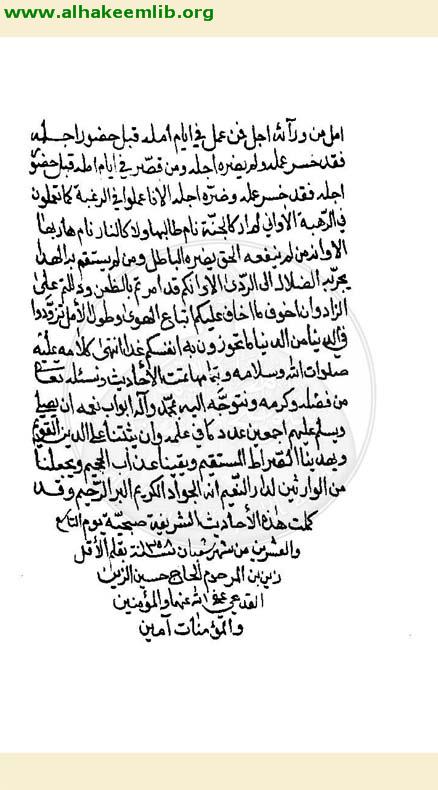 www.alhakeemlib.org
امل من ورآئه اجل فمن عمل في ايام امله قبل حضور اجله
فقد خسر عمله ولم يضره اجله ومن قصّر في ايام امله قبل حضور
اجله فقد خسر عمله وضرّه اجله الا فاعملوا في الرغبة كما تعملون
في الرّهبة الا واني لم ار كالجنّة نام طالبها ولا كالنار نام هاربها
الا وانه من لم ينفعه الحق يضره الباطل ومن لم يستقم به الهدا
يجرّ به الضلال الى الردّى الا وانكم قد امرتم بالظعن ودللتم على
الزاد وان اخوف ما اخاف عليكم اتباع الهوى وطول الأمل تزوّدوا
في الدنيا من الدنيا ما تحوزون به انفسكم غدا انتهى كلامه عليه
صلوات الله وسلامه وبتمامه تمت الأحاديث ونسئله تعالى
من فضله وكرمه ونتوجّه اليه بمحمّد وآله ابواب نعمه ان يصلي
ويسلم عليهم اجمعين عدد ما في علمه وان يثبتنا على الدين القويم
ويهدينا الصّراط المستقيم ويقينا عذاب الجحيم ويجعلنا
من الوارثين لدار النّعيم انه الجواد الكريم البر الرّحيم وقد
كملت هذه الأحاديث الشريفة صبحيّة يوم التاسع
والعشرين من شهر شعبان سنة ١٣٥٨ بقلم الأقل
زين بن المرحوم الحاج حسين الزين
القديمي عفى الله عنهما والمؤمنين
والمؤمنات آمين